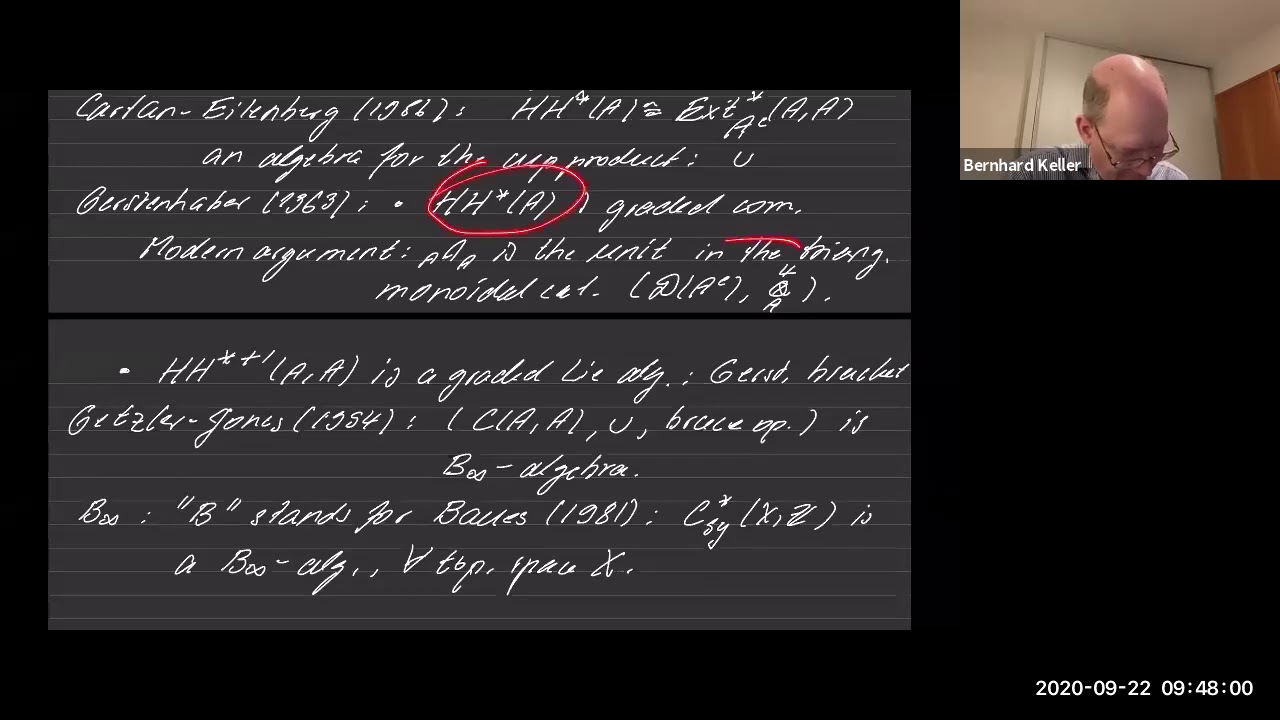 Cartan-Eilenberg (1956): HH*(A) ≅ Ext*_{A^e}(A,A)
an algebra for the cup product: ∪
Gerstenhaber (1963): • HH*(A) is graded com.
Modern argument: _A A_A is the unit in the triang.
monoidal cat. (D(A^e), ⊗^L_A).
• HH^{*+1}(A,A) is a graded Lie alg.: Gerst. bracket
Getzler-Jones (1994): (C(A,A), ∪, brace op.) is
B∞-algebra.
B∞: "B" stands for Baues (1981): C*_{sg}(X,Z) is
a B∞-alg., ∀ top. space X.
Bernhard Keller
2020-09-22 09:48:00